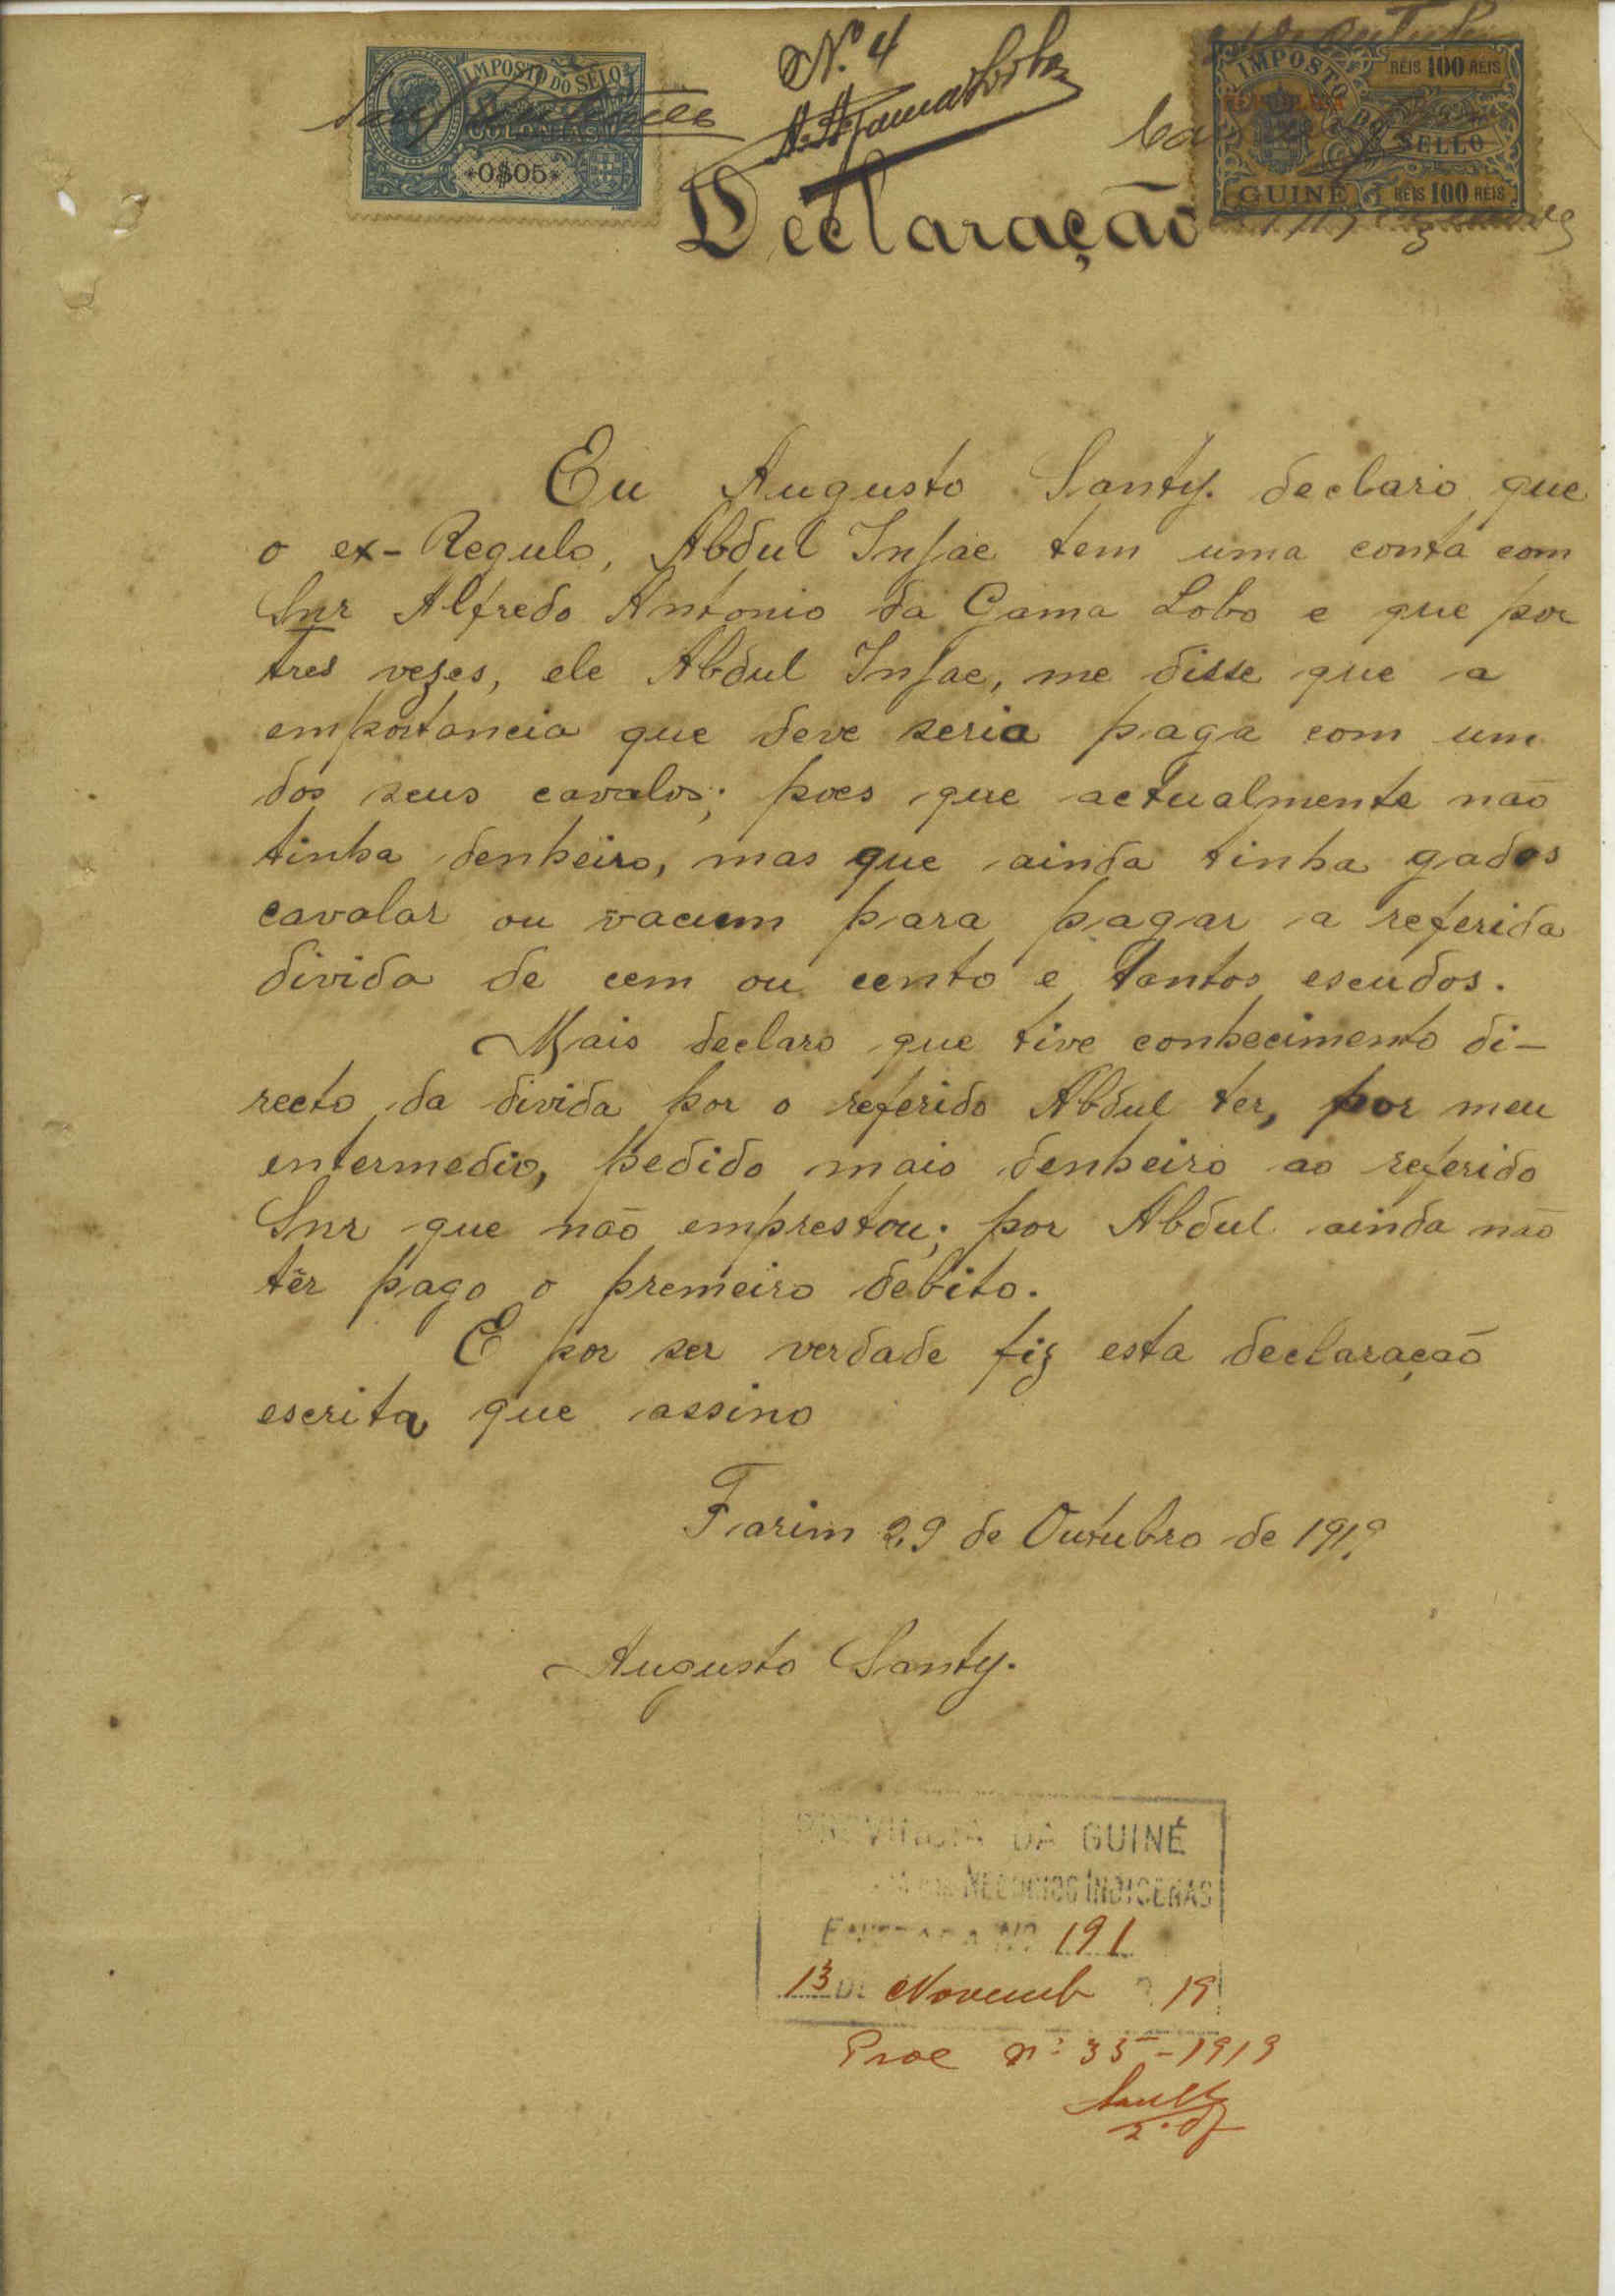 Nº 4
A. A. Gama Lobo
IMPOSTO DO SELO
COLONIAS
0$05
IMPOSTO DO SELLO
REPUBLICA
GUINÉ
REIS 100 REIS
REIS 100 REIS
Declaração
Eu Augusto Santy. declaro que
o ex-Regulo, Abdul Injae tem uma conta com
Snr Alfredo Antonio da Gama Lobo e que por
tres vezes, ele Abdul Injae, me disse que a
emportancia que deve seria paga com um
dos seus cavalos; poes que actualmente não
tinha denheiro, mas que ainda tinha gados
cavalar ou vacum para pagar a referida
divida de cem ou cento e tantos escudos.
Mais declaro que tive conhecimento di-
recto da divida por o referido Abdul ter, por meu
entermedio, pedido mais denheiro ao referido
Snr que não emprestou; por Abdul ainda não
têr pago o premeiro debito.
E por ser verdade fiz esta declaração
escrita que assino
Farim 29 de Outubro de 1919
Augusto Santy.
PROVINCIA DA GUINÉ
NEGOCIOS INDIGENAS
ENTRADA Nº 191
13 DE Novemb 19
Proc nº 35-1919